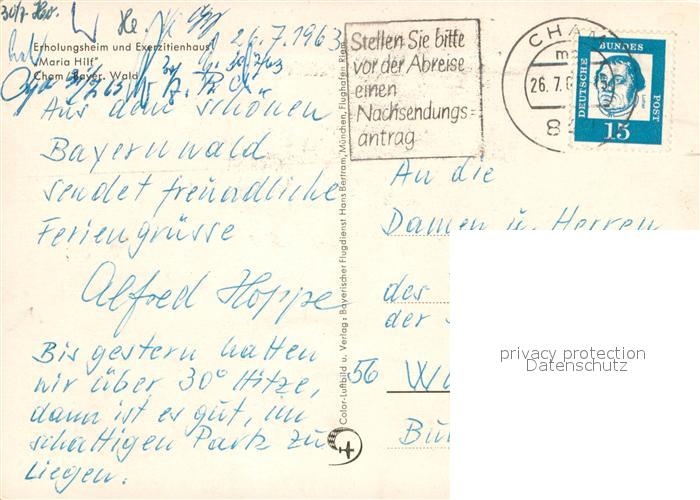 30/7. Hr.
26.7.1963
Erholungsheim und Exerzitienhaus
"Maria Hilf"
Cham/Bayer. Wald
Aus dem schönen
Bayernwald
sendet freundliche
Feriengrüsse
Alfred Hoppe
Bis gestern hatten
wir über 30° Hitze,
dann ist es gut, im
schattigen Park zu
liegen.
Color-Luftbild u. Verlag: Bayerischer Flugdienst Hans Bertram, München, Flughafen Riem
Stellen Sie bitte
vor der Abreise
einen
Nachsendungs=
antrag
CHAM
26.7.
DEUTSCHE BUNDES POST
15
An die
Damen u. Herren
des
der
56
privacy protection
Datenschutz